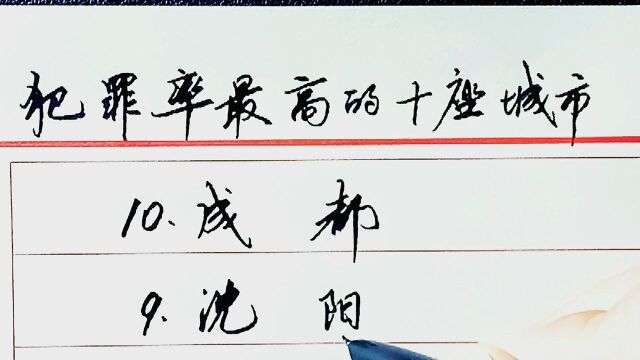 犯罪率最高的十座城市
10.成都
9.沈阳